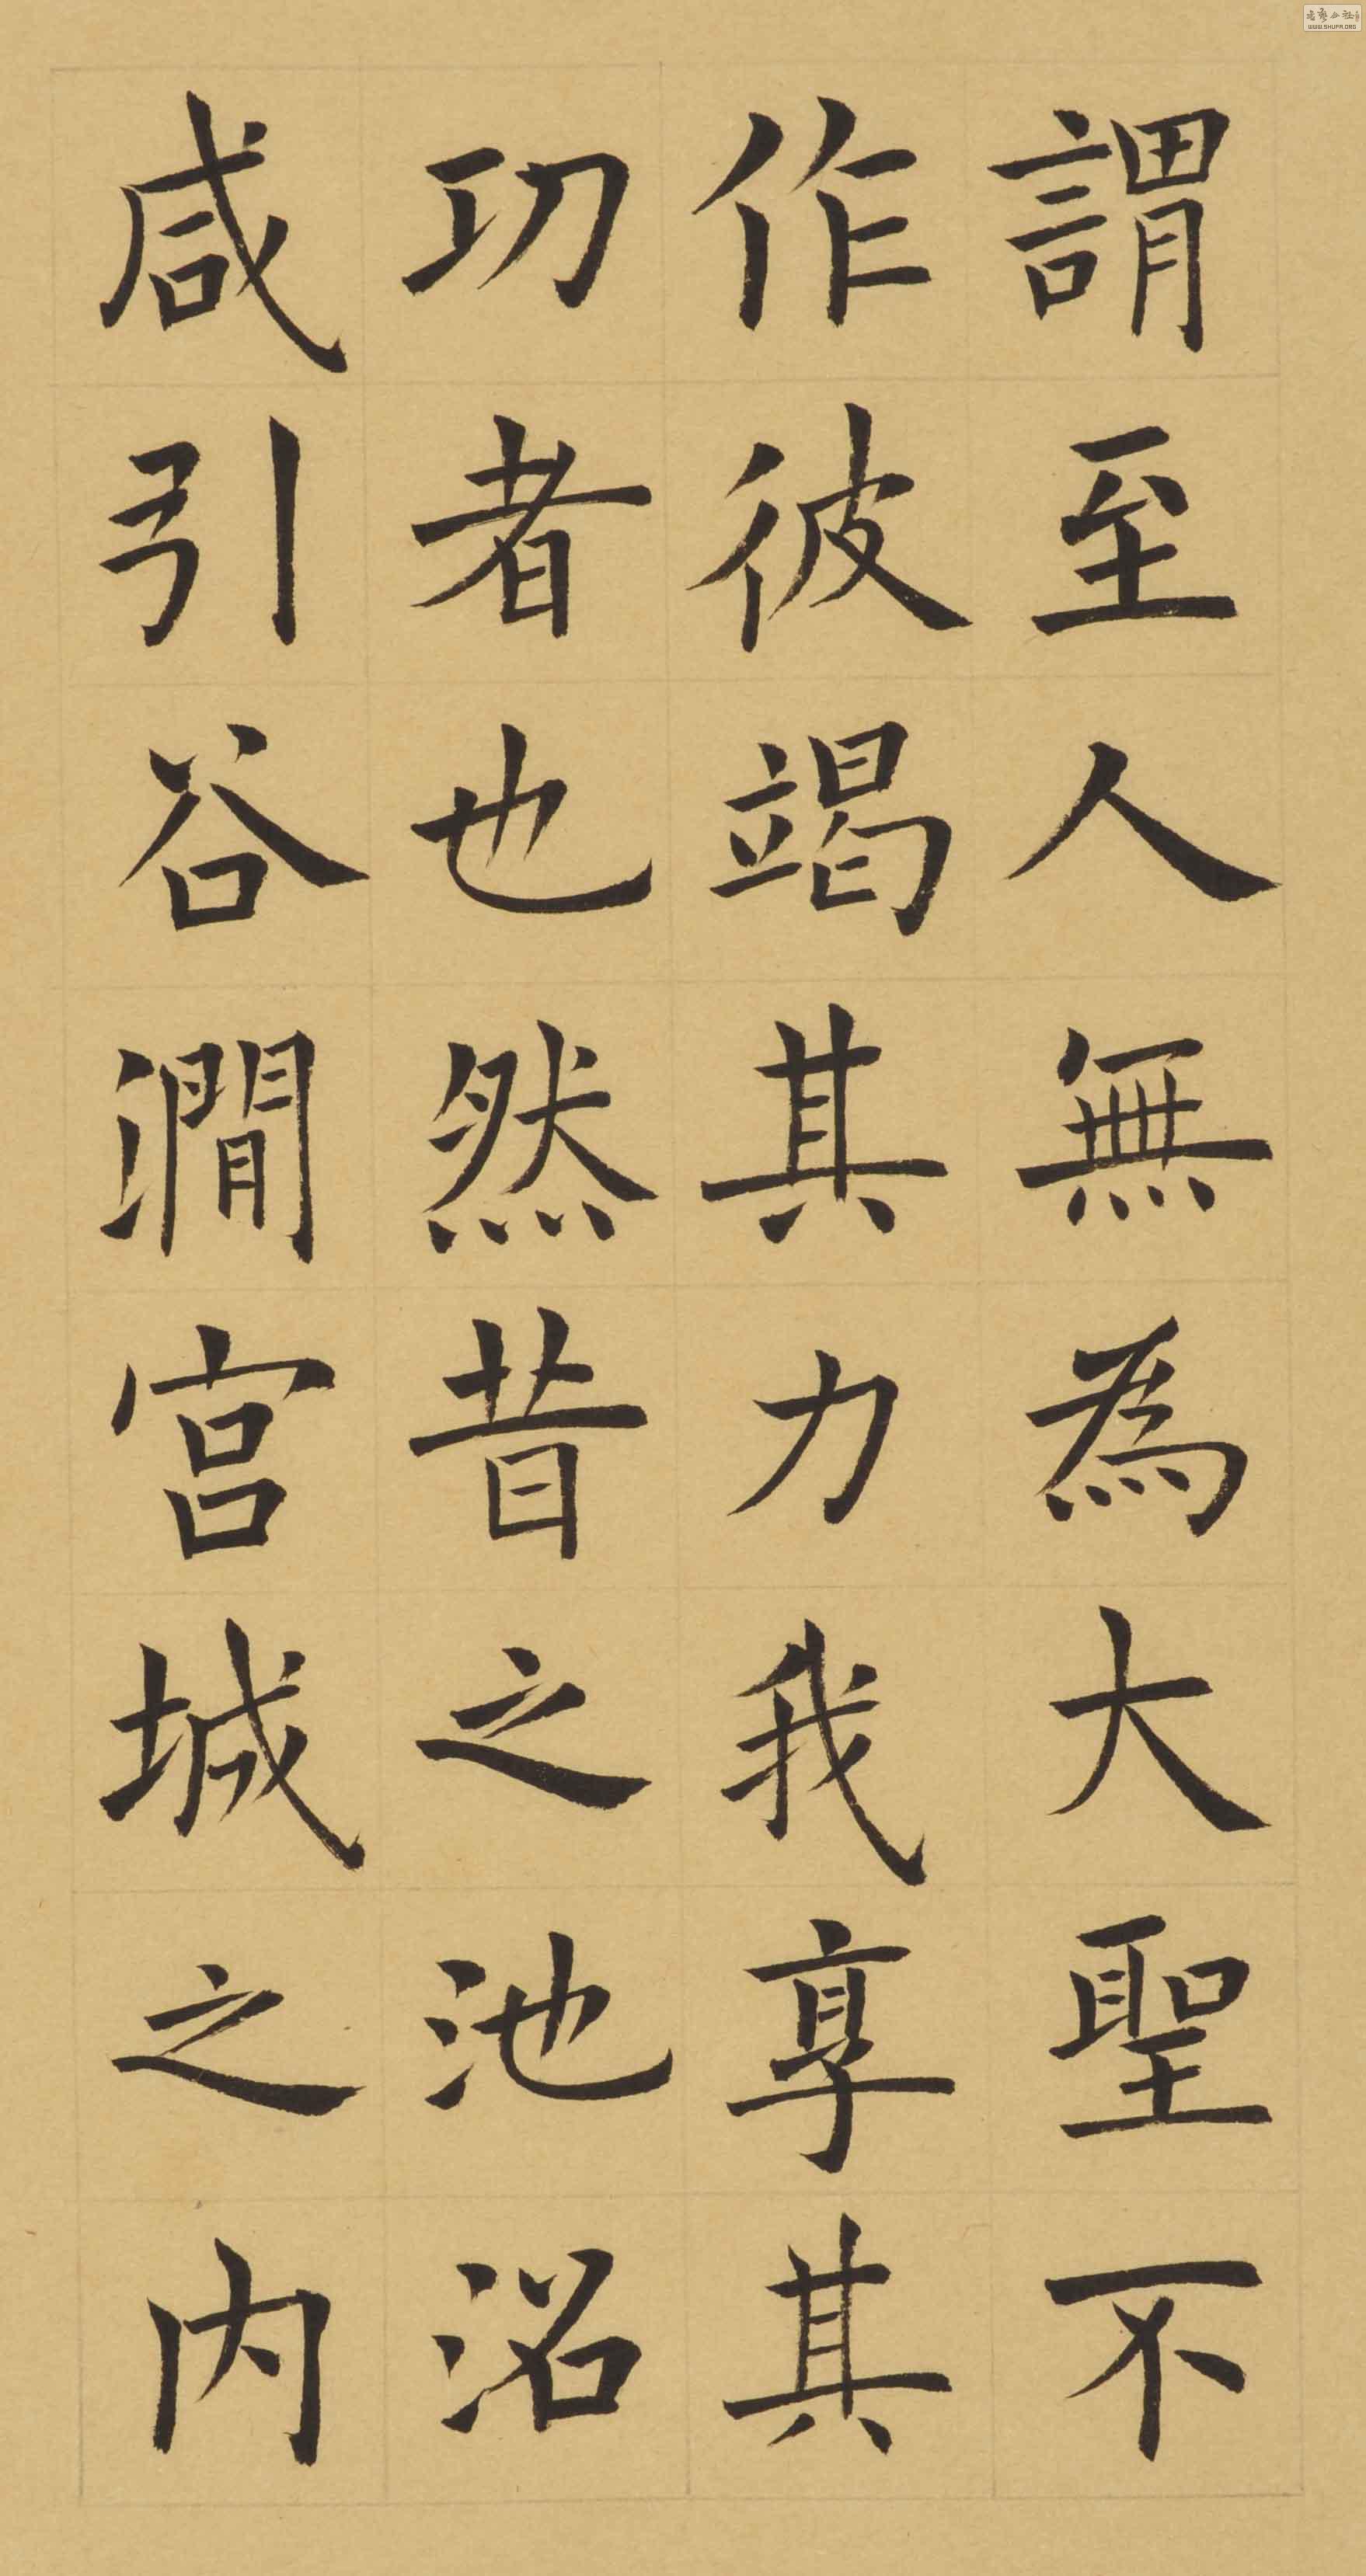 謂至人無為大聖不
作彼竭其力我享其
功者也然昔之池沼
咸引谷澗宫城之内
WWW.SHUFA.ORG